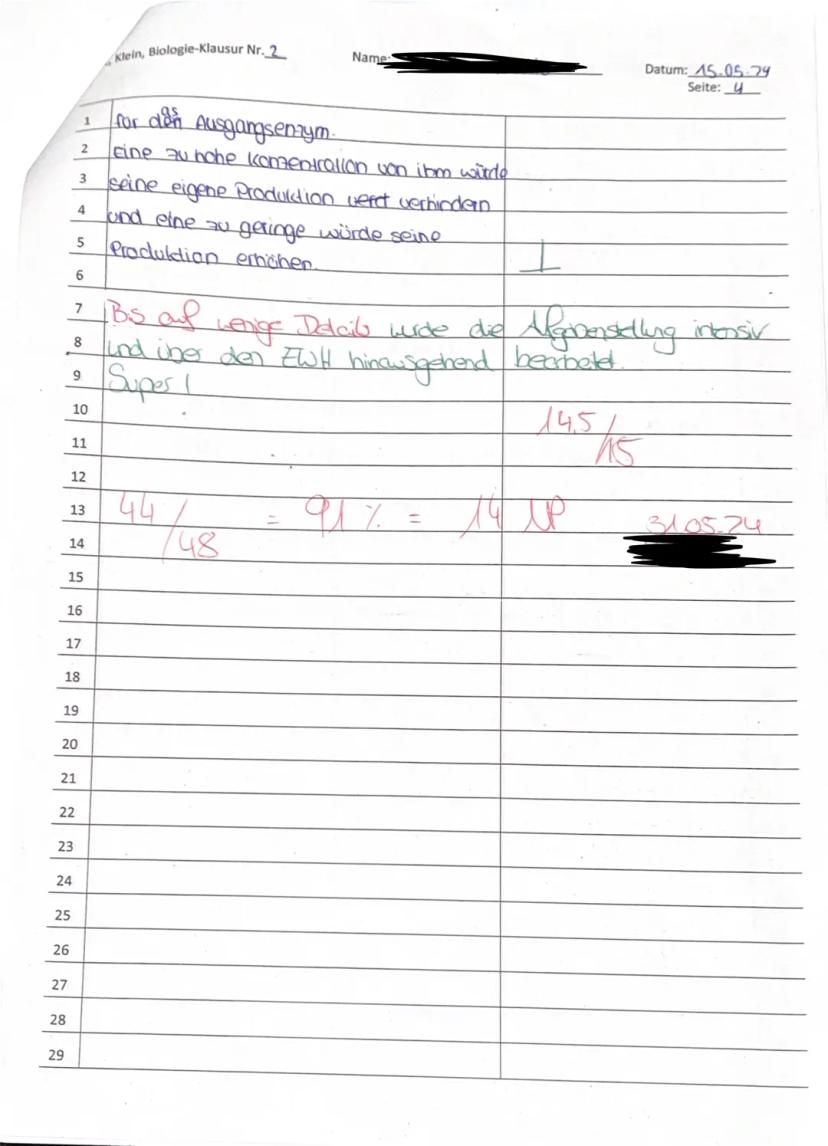 Klein, Biologie-Klausur Nr. 2
Name:
Datum: 15.05.24
Seite: 4
1 für das Ausgangsenzym.
2 Eine zu hohe Konzentration von ihm würde
3 seine eigene Produktion verhindern
4 und eine zu geringe würde seine
5 Produktion erhöhen.
6
7 Bis auf wenige Details wurde die Afgabenstellung intensiv
8 und über den EWH hinausgehend bearbeitet.
9 Super!
10 14,5/15
11
12
13 44/48 = 91% = 14 NP 31.05.24
14
15
16
17
18
19
20
21
22
23
24
25
26
27
28
29